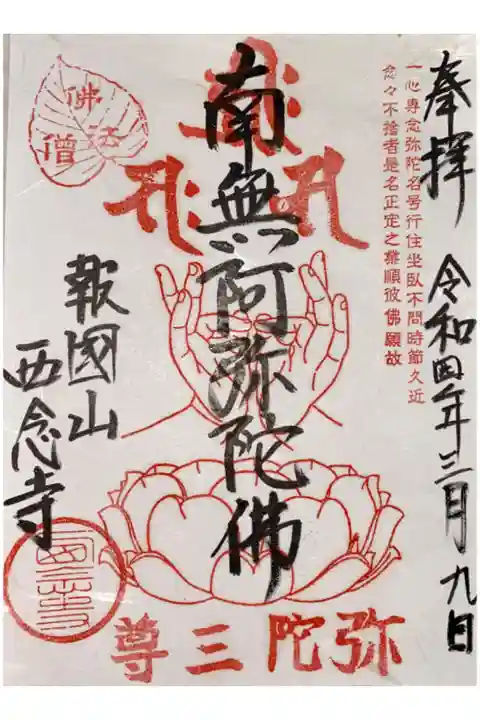 奉拝 令和四年三月九日
一心専念弥陀名号行住坐臥不問時節久近
念々不捨者是名正定之業順彼佛願故
南無阿弥陀佛
佛
法
僧
報國山
西念寺
弥陀三尊